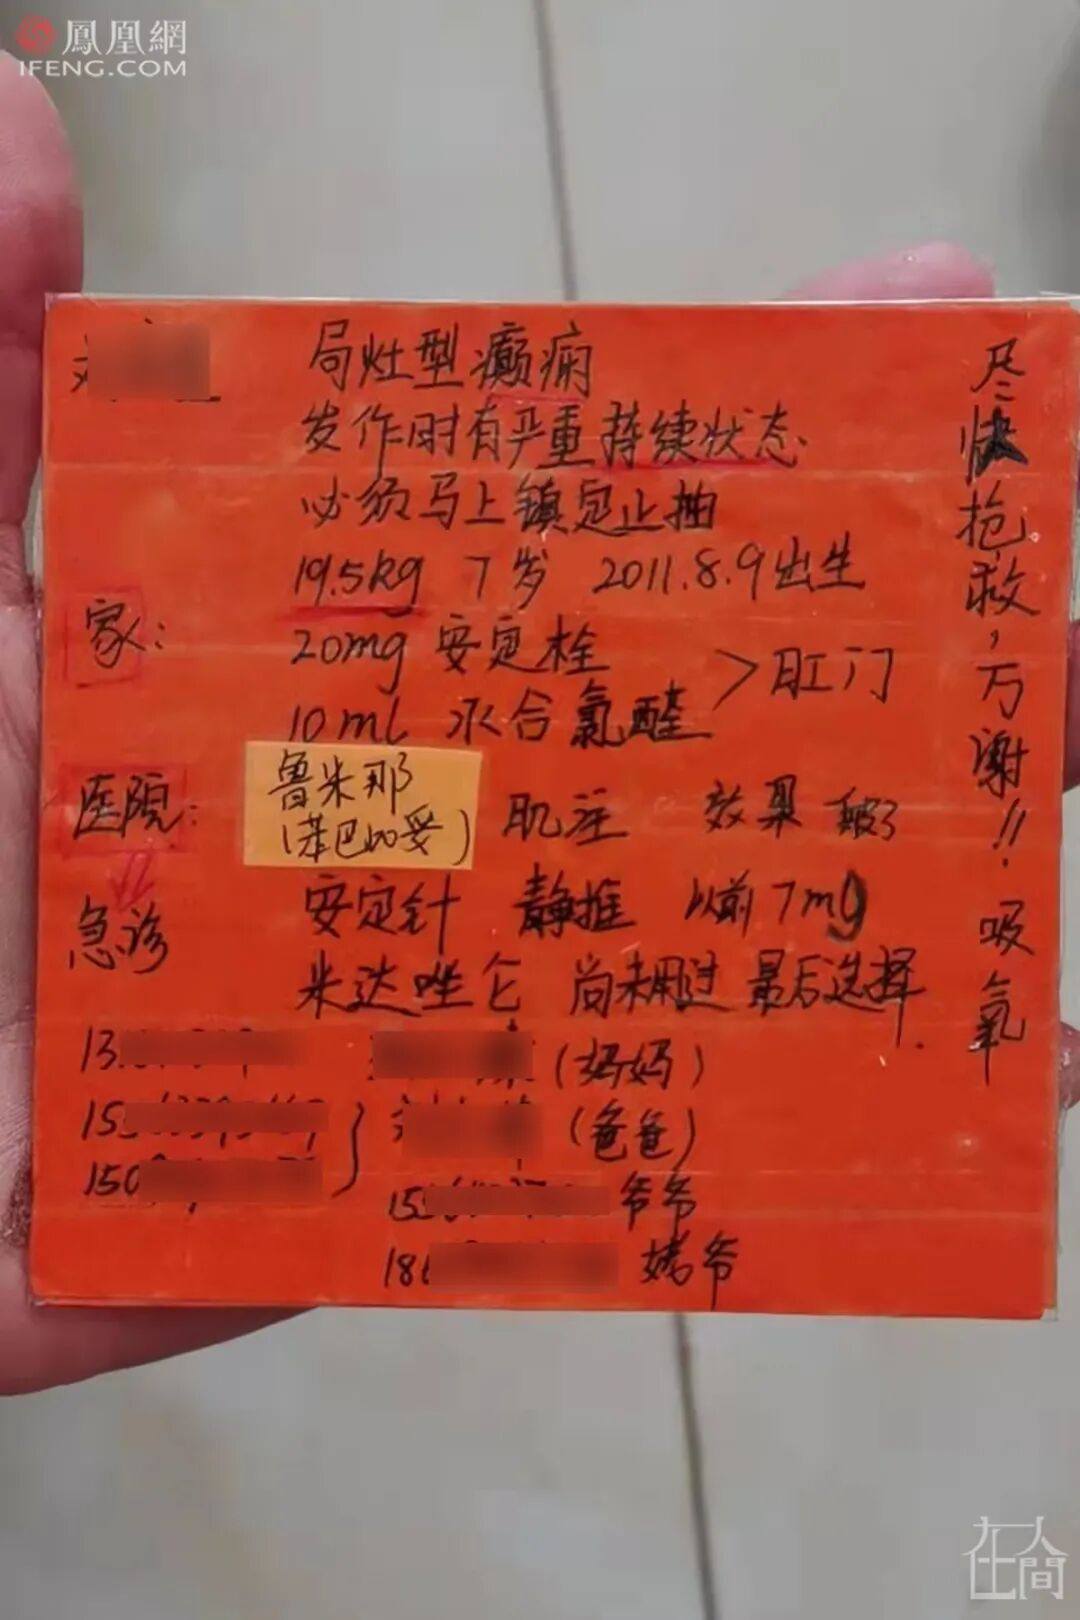 鳳凰網
IFENG.COM
局灶型癫痫
发作时有严重持续状态
必须马上镇定止抽
19.5kg 7岁 2011.8.9出生
家:
20mg 安定栓
10ml 水合氯醛 >肛门
医院:
鲁米那
(苯巴比妥)
肌注 效果
急诊
安定针 静推 以前7mg
米达唑仑 尚未用过 最后选择
13
(妈妈)
15
(爸爸)
150
15 爷爷
18 姥爷
尽快抢救,万谢!!吸氧
在人間